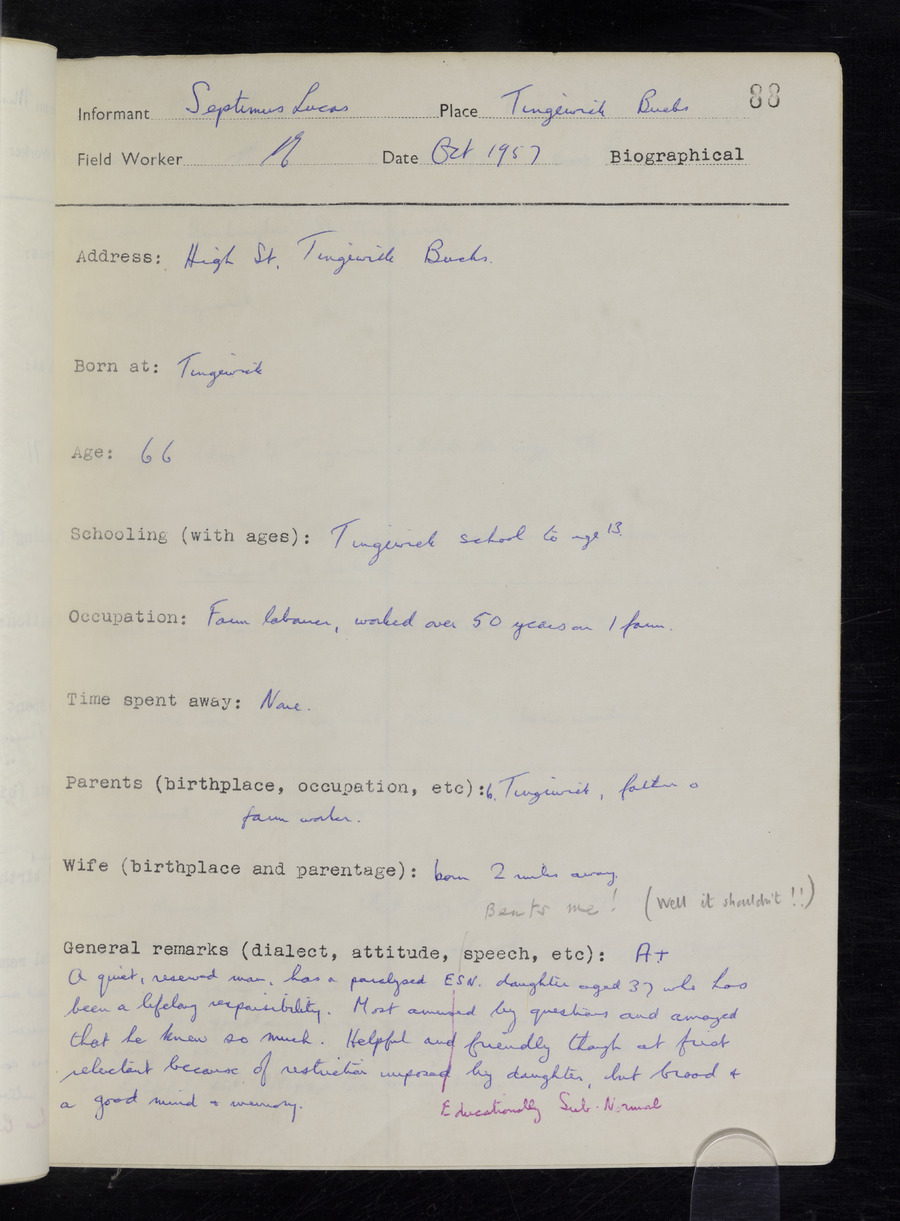 88
Informant Septimus Lucas Place Tingewick Bucks
Field Worker Date Oct 1957 Biographical
Address: High St. Tingewick Bucks.
Born at: Tingewick
Age: 66
Schooling (with ages): Tingewick school to age 13.
Occupation: Farm labourer, worked over 50 years on 1 farm.
Time spent away: None.
Parents (birthplace, occupation, etc): b. Tingewick, father a
farm worker.
Wife (birthplace and parentage): born 2 miles away.
Beats me! (Well it shouldn't!!)
General remarks (dialect, attitude, speech, etc): A+
A quiet, reserved man, has a paralysed ESN. daughter aged 37 who has
been a lifelong responsibility. Most amused by questions and amazed
that he knew so much. Helpful and friendly though at first
reluctant because of restriction imposed by daughter, but broad +
a good mind + memory.
Educationally Sub-Normal